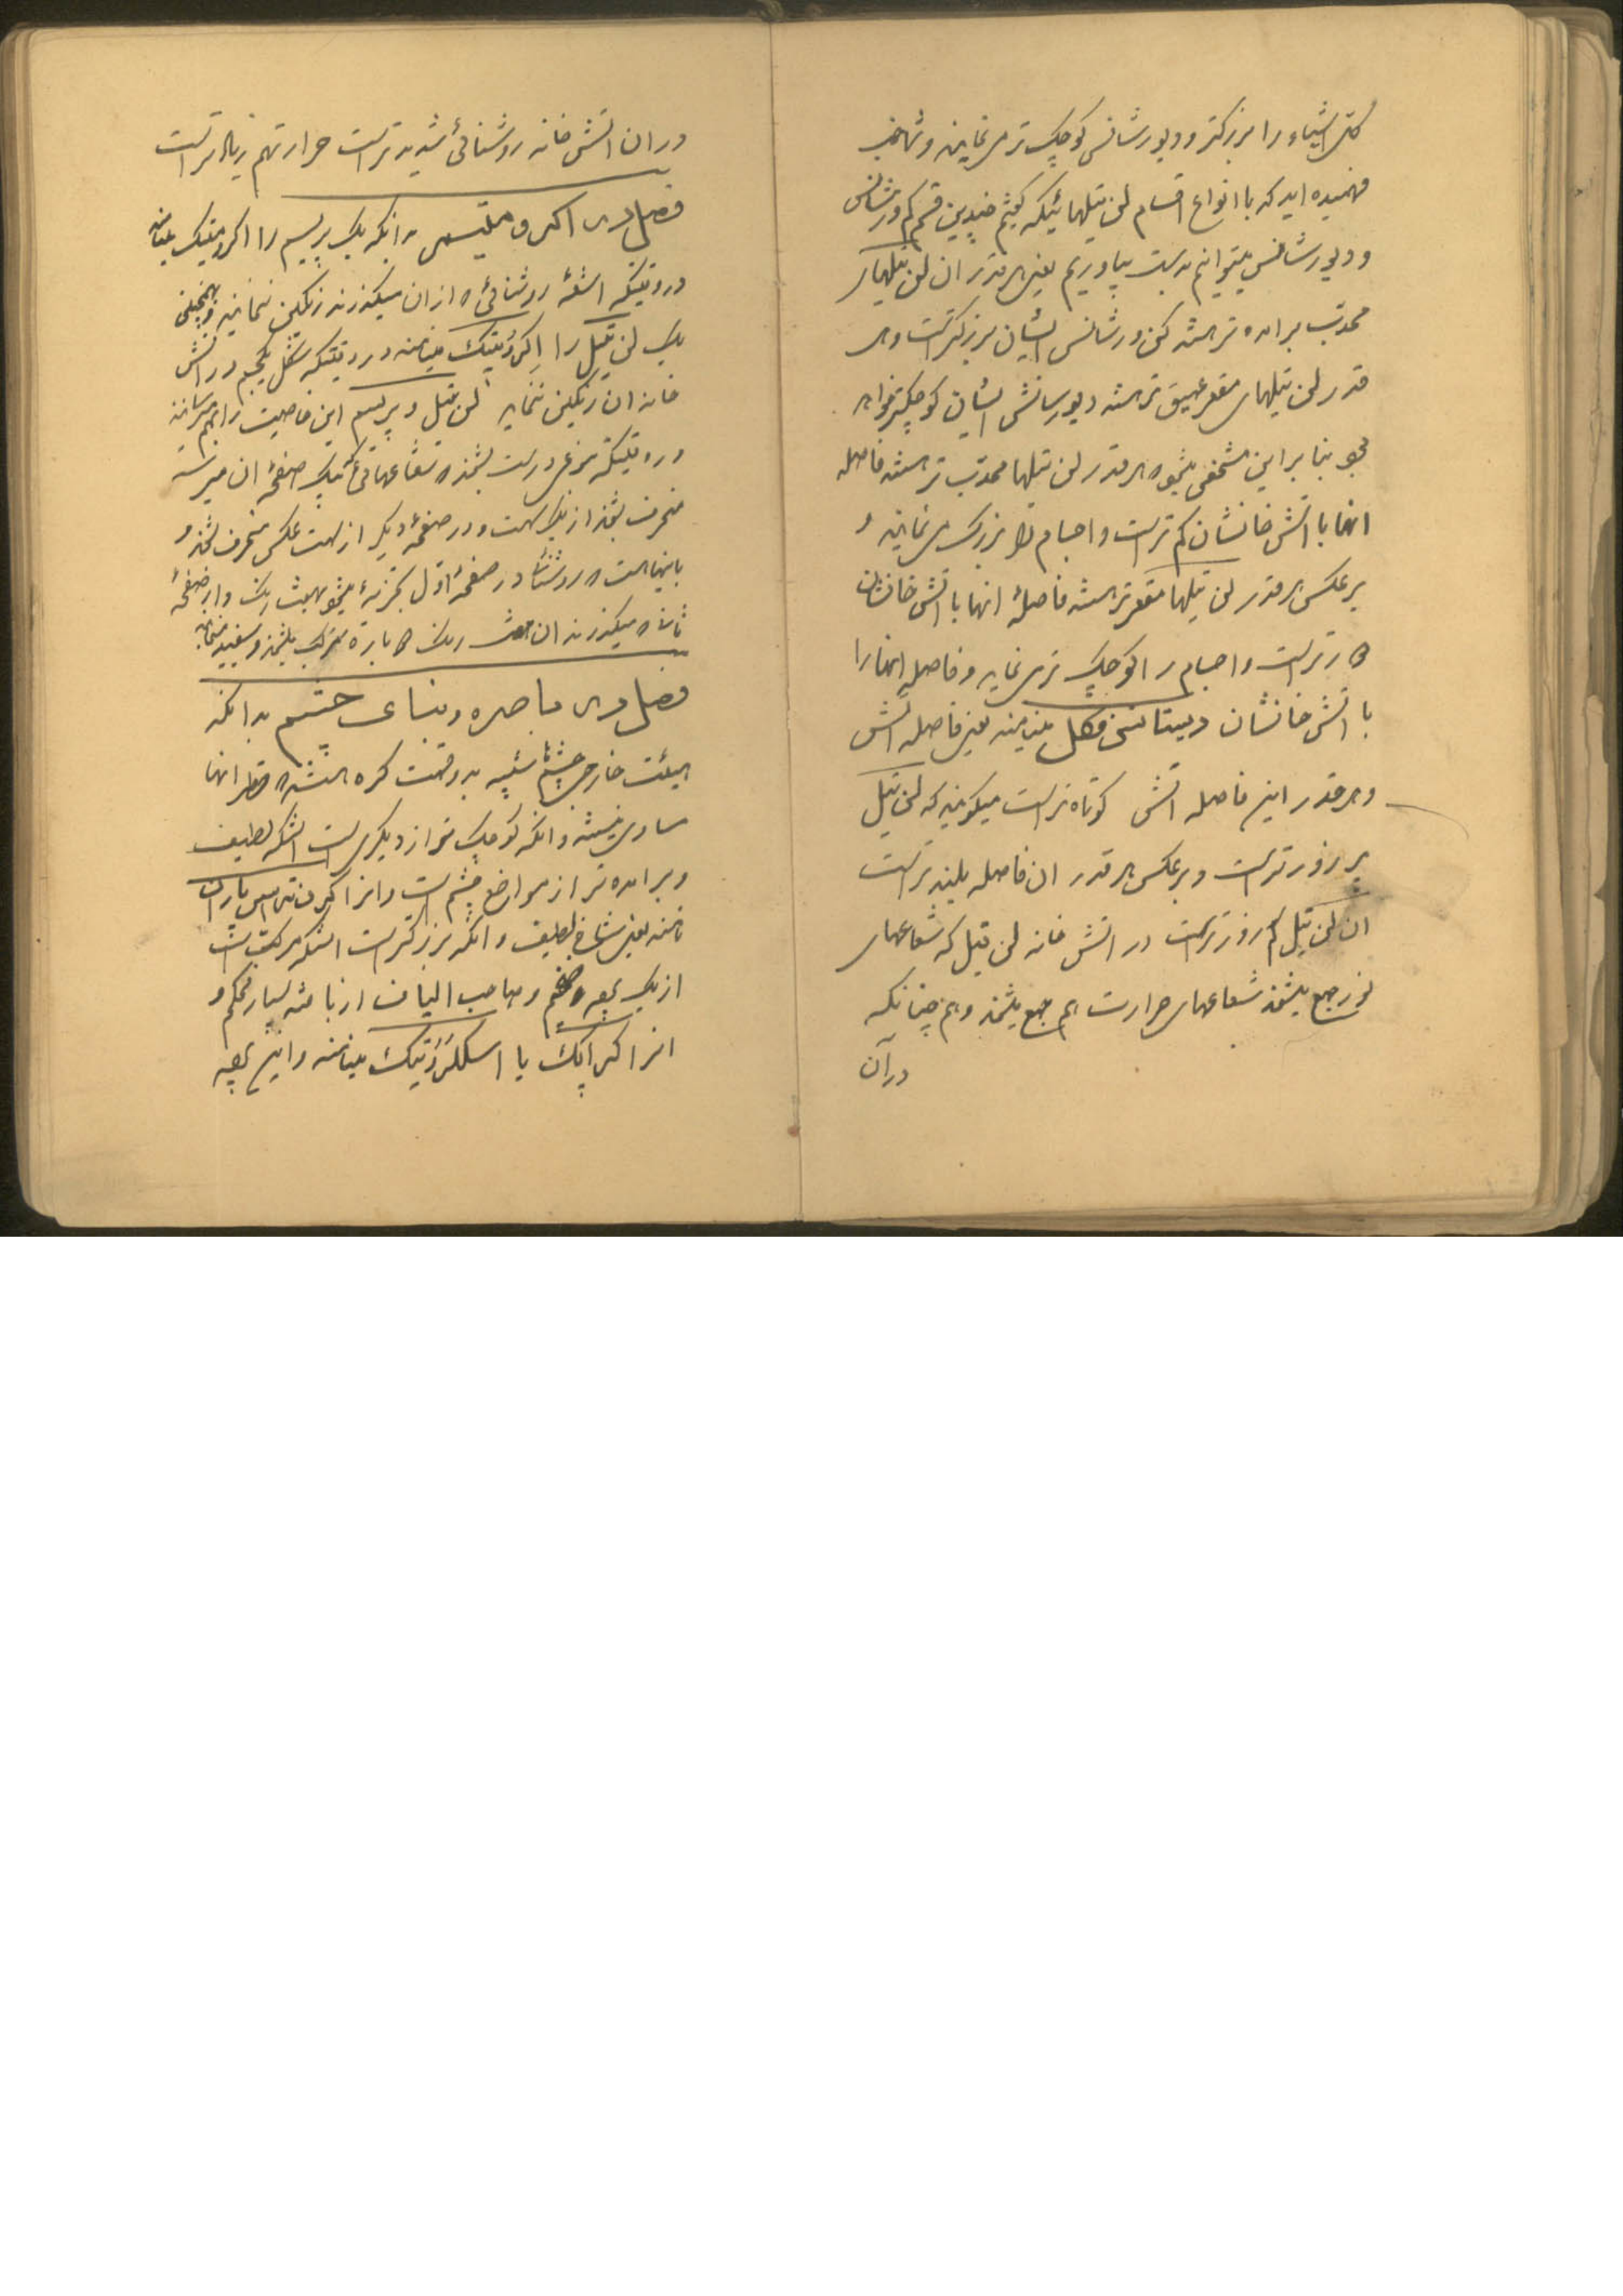 کلی اشیاء را بزرکتر و دیورشانس کوچک تر می نمایند و شما
فهمیده اید که با انواع اقسام لن تیلهائیکه گفتیم چندین قسم کم ورشانس
و دیورشانس میتوانیم بدست بیاوریم یعنی هر قدر ان لن تیلهای
محدب برامده تر هستند کن ورشانس ایشان بزرکتر است و هر
قدر لن تیلهای مقعر عمیق تر هستند دیورسانش ایشان کوچکتر خواهد
بود بنا بر این مشخص میشود هر قدر لن تیلها محدب تر هستند فاصله
انها با اتش خانشان کم تر است و اجسام را بزرک می نمایند و
بر عکس هر قدر لن تیلها مقعر تر هستند فاصلهٔ انها با اتش خانشان
تر است و اجسام را کوچک تر می نماید و فاصله انها را
با اتش خانشان دیستانس فکل مینامند یعنی فاصله اتش
و هر قدر این فاصله اتش کوتاه تر است میکویند که لن تیل
پر زور تر است و بر عکس هر قدر ان فاصله بلند تر است
ان لن تیل کم زور تر است در اتش خانه لن تیل که شعاعهای
نور جمع میشوند شعاعهای حرارت هم جمع میشوند و هم چنانکه
در آن
در ان اتش خانه روشنائی شدید تر است حرارتهم زیاد تر است
فصل در اکرماتیسم بدانکه یک پریسم را اکرماتیک مینامند
در وقتیکه اشعهٔ روشنائی که از ان میکذرند رنکین ننمایند و همچنین
یک لن تیل را اکرماتیک مینامند در وقتیکه شکل یک جسم در اتش
خانه ان رنکین ننماید لن تیل و پریسم این خاصیت را بهم میرسانند
در وقتیکه نوعی درست بشوند که شعاعهائی که بیک صفحهٔ ان میرسند
منحرف بشوند از یک سمت و در صفحهٔ دیکر از سمت عکس منحرف بشوند و
باینجهت که روشنائی در صفحهٔ اول تجزیه میشود بهفت رنک و از صفحهٔ
ثانی که میکذرند ان هفت رنک دوباره مرکب میشوند و سفید مینمایند
فصل در باصره و بینائی چشم بدانکه
هیئت خارجی چشم شبیه بدو قسمت کره است که قطر انها
مساوی نیستند و انکه کوچک تر از دیکری است انستکه لطیف
و برامده تر از مواضع چشم است و انرا کرنه ترانسپارانت
نامند یعنی شاخ لطیف و انکه بزرکتر است انستکه مرکب است
از یک پرده ضخیم و صاحب الیاف از بافته بسیار محکم و
انرا کرنه اپک یا اسکلرتیک مینامند و این پرده